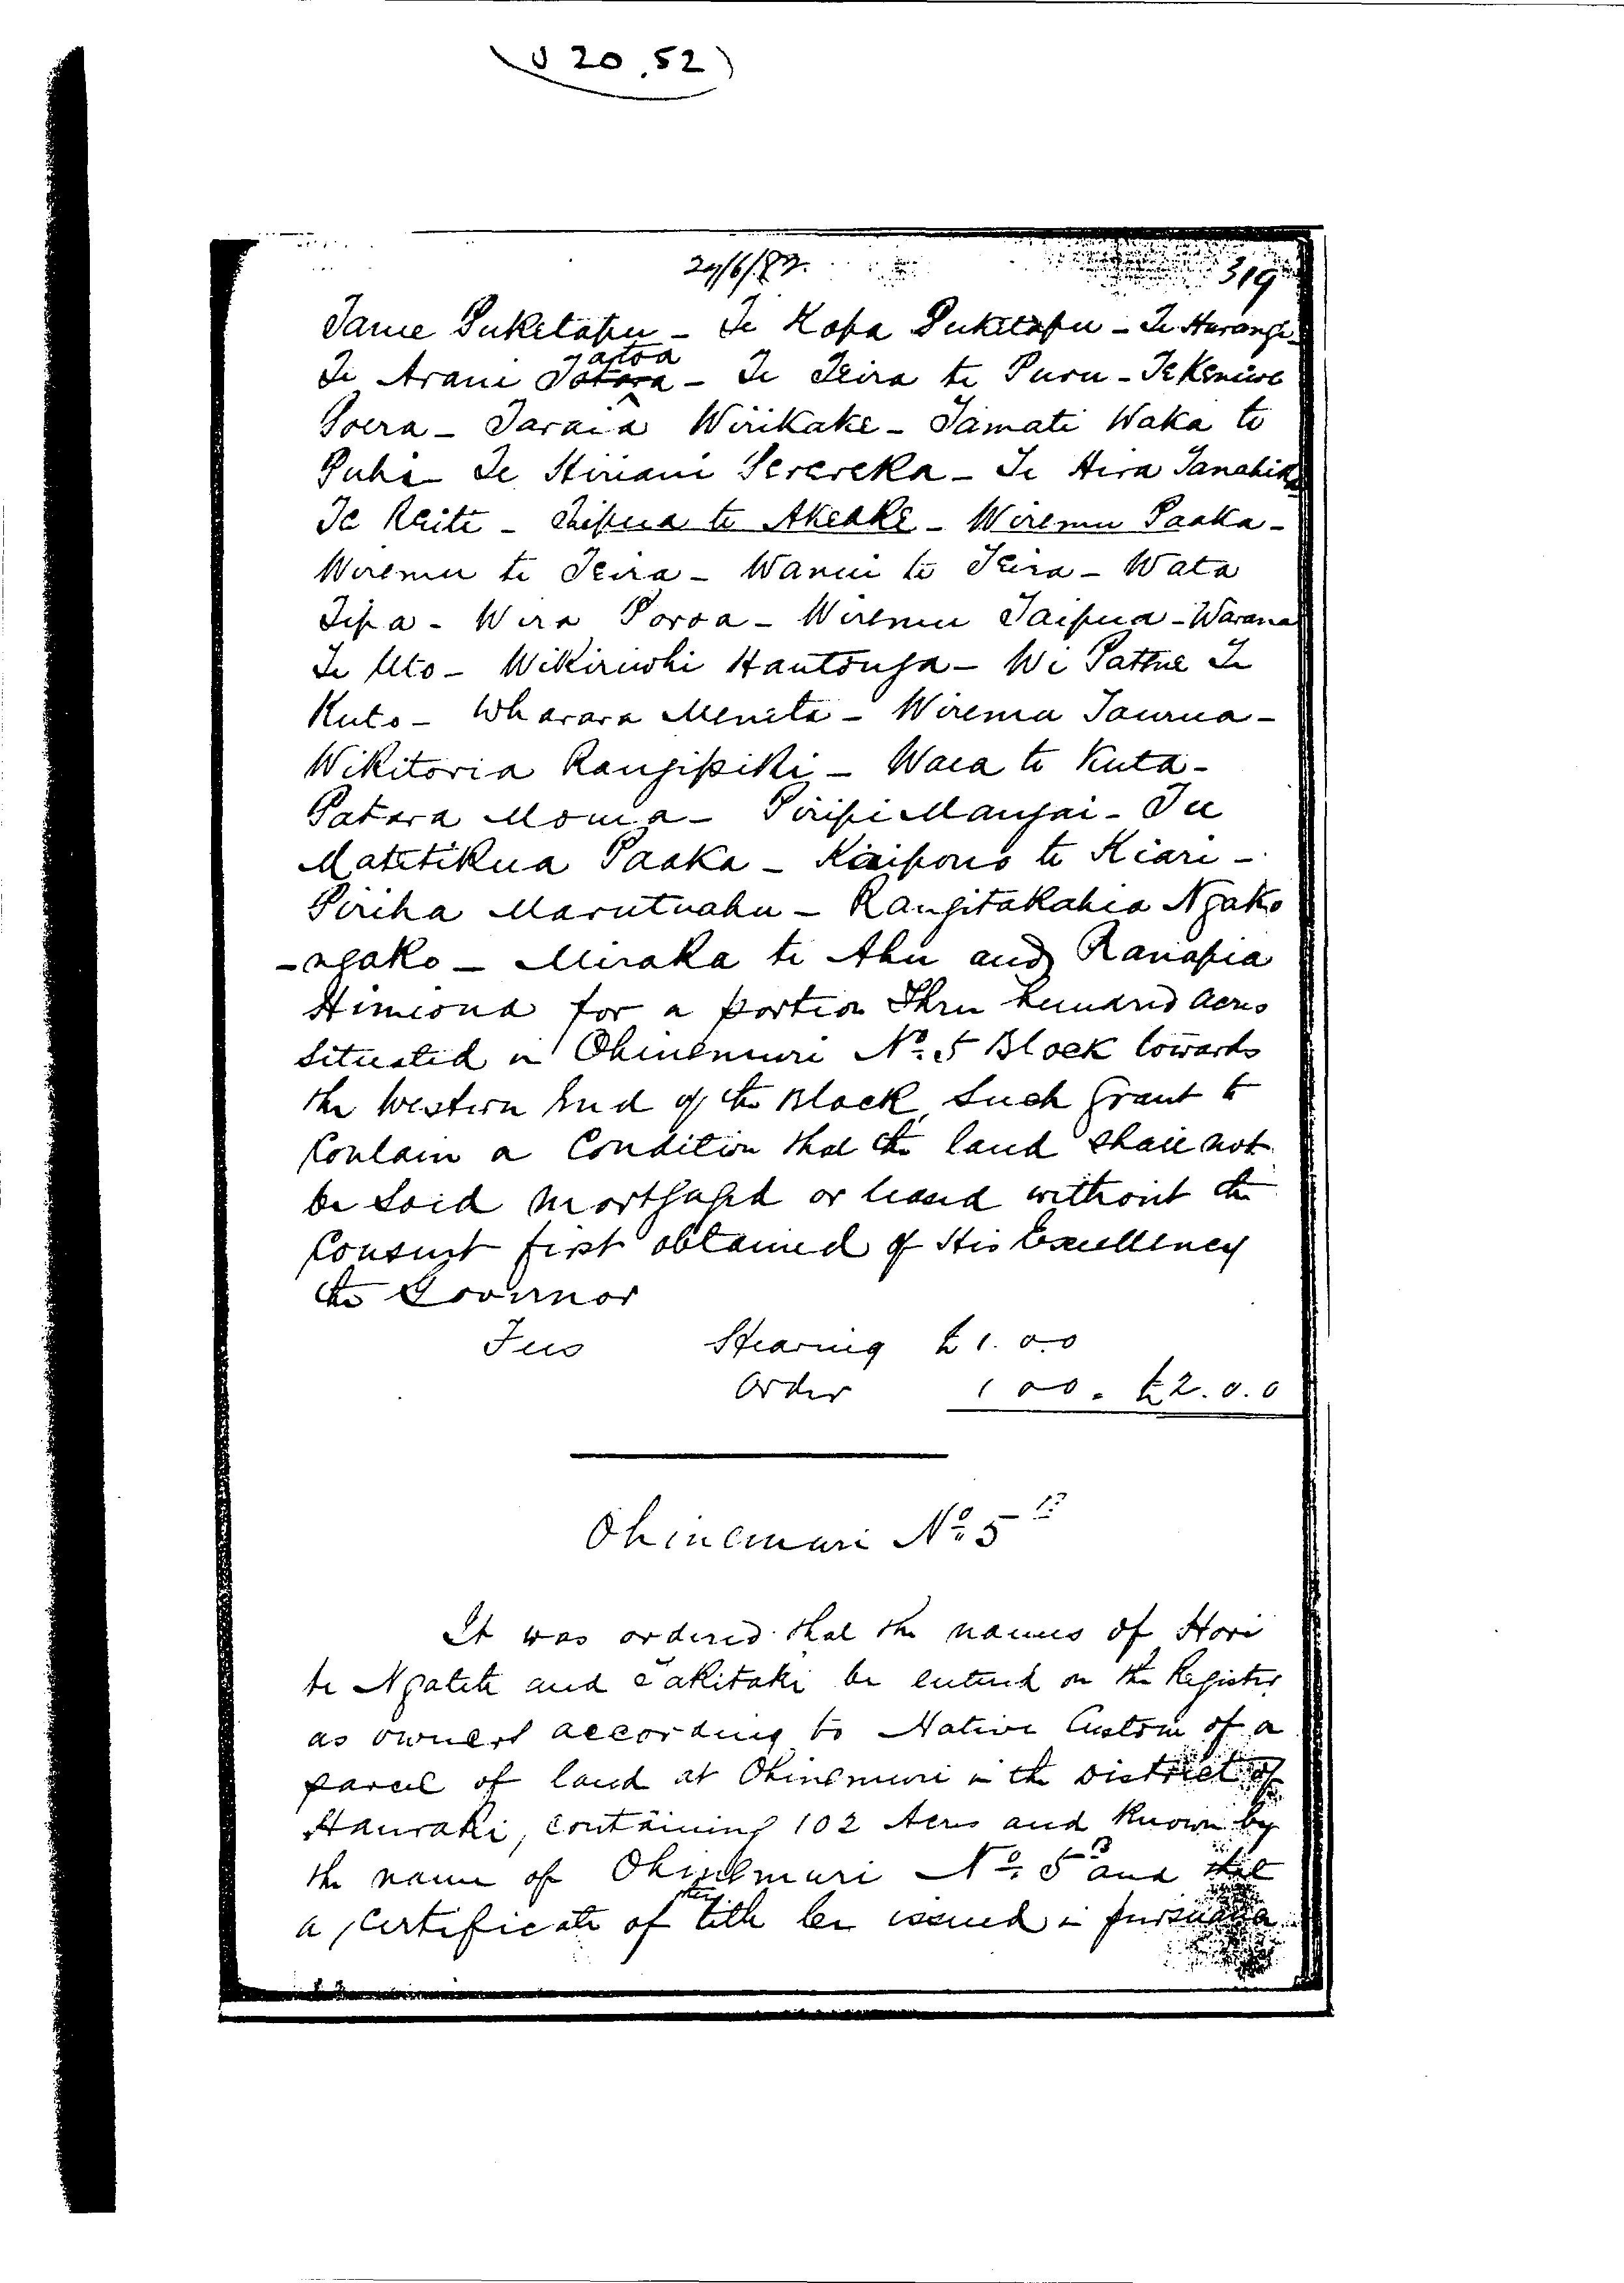 (J 20, 52)
319
Tamie Puketapu - Te Kopa Puketapu - Te Harangi
Te Arani Tatoa - Te Teira te Puru - Te Keniwe
Poera - Taraia Wirikake - Tamati Waka te
Puhi - Te Hiriani Perereka - Te Hira Tanahira
Te Reiti - Thipua te Akeake - Wiremu Paaka -
Wiremu te Teira - Wanui te Teira - Wata
Tipa - Wira Poroa - Wiremu Taipua - Warana
Te Uto - Wikiriwhi Hautonga - Wi Patene Te
Kuto - Wharara Meneta - Wirema Taurua -
Wikitoria Rangipiki - Waea te Kuta -
Patara Moma - Piripi Mangai - Tu
Matetikua Paaka - Kaipono te Kiari -
Piriha Marutuahu - Rangitakahia Ngako
-ngako - Miraka te Ahu and Ranapia
Himiona for a portion Three hundred acres
Situated in Ohinemuri No. 5 Block towards
the Western End of the Block, Such Grant to
Contain a Condition that the land shall not
be Sold Mortgaged or leased without the
Consent first obtained of His Excellency
the Governor
Fees Hearing £1.0.0
Order 1 0 0 - £2.0.0
Ohinemuri No. 5 B
It was ordered that the names of Hori
te Ngatete and Takitaki be entered on the Register
as owners according to Native Custom of a
parcel of land at Ohinemuri in the District of
Hauraki, containing 102 Acres and Known by
the name of Ohinemuri No. 5 B and that
a certificate of their title be issued in pursuance